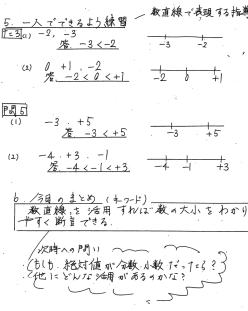 5. 一人でできるよう練習
数直線で表現する指導
問3(1) -2, -3
答 -3 < -2
-3 -2
(2) 0 +1 -2
答 -2 < 0 < +1
-2 0 +1
問5
(1) -3 . +5
答 -3 < +5
-3 +5
(2) -4 . +3 . -1
答 -4 < -1 < +3
-4 -1 +3
6. 今日のまとめ (キーワード)
数直線を活用すれば数の大小をわかり
やすく断言できる.
次時への問い
もしも、絶対値が分数、小数だったら?
他にどんな活用があるのかな?